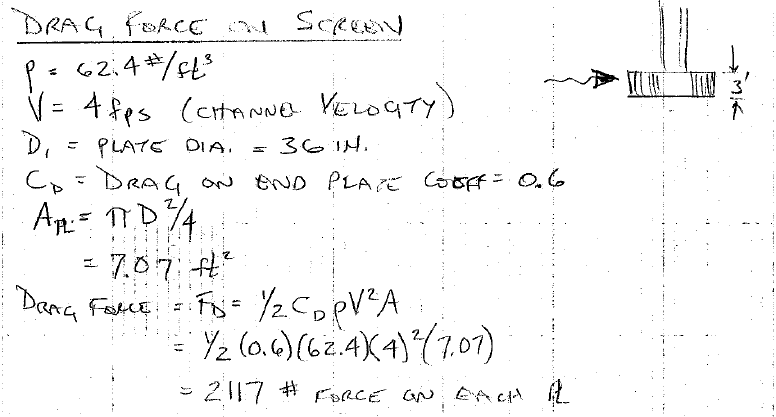 DRAG FORCE ON SCREEN
ρ = 62.4 #/ft³
V = 4 fps (CHANNEL VELOCITY)
3'
D₁ = PLATE DIA. = 36 IN.
C_D = DRAG ON END PLATE COEFF = 0.6
A_PL = πD²/4
= 7.07 ft²
DRAG FORCE = F_D = 1/2 C_D ρV²A
= 1/2 (0.6)(62.4)(4)²(7.07)
= 2117 # FORCE ON EACH PL